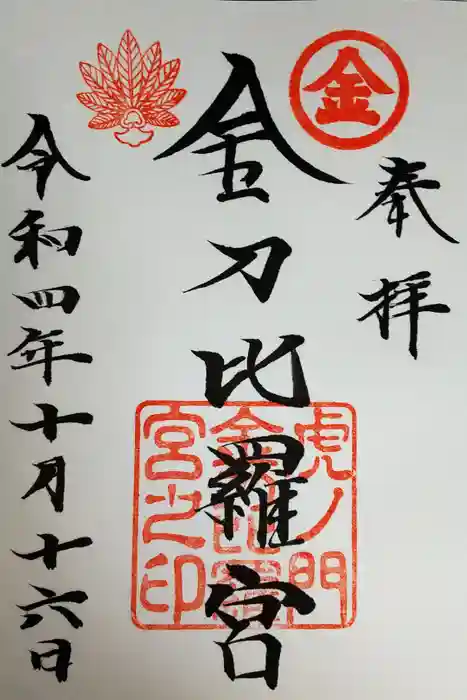 金
奉拝
金刀比羅宮
虎ノ門
金比羅
宮之印
令和四年十月十六日